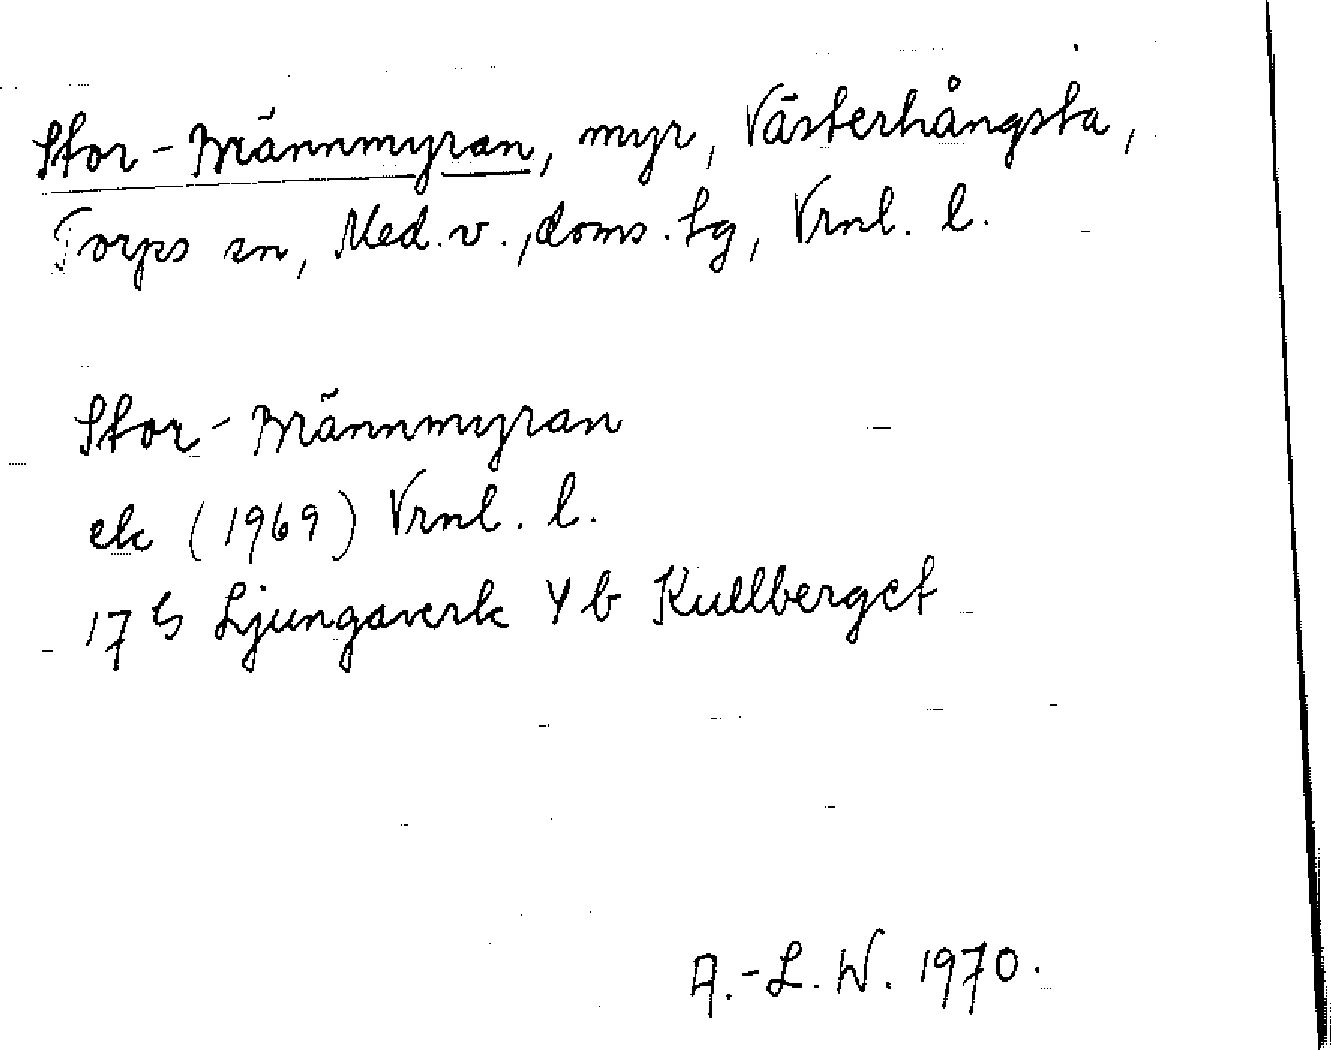 Stor-Brännmyran, myr, Västerhångsta,
Torps sn, Med. v., doms. tg, Vrnl. l.
Stor-Brännmyran
ek (1969) Vrnl. l.
17 G Ljungaverk 4 b Kullberget
A.-L. W. 1970.